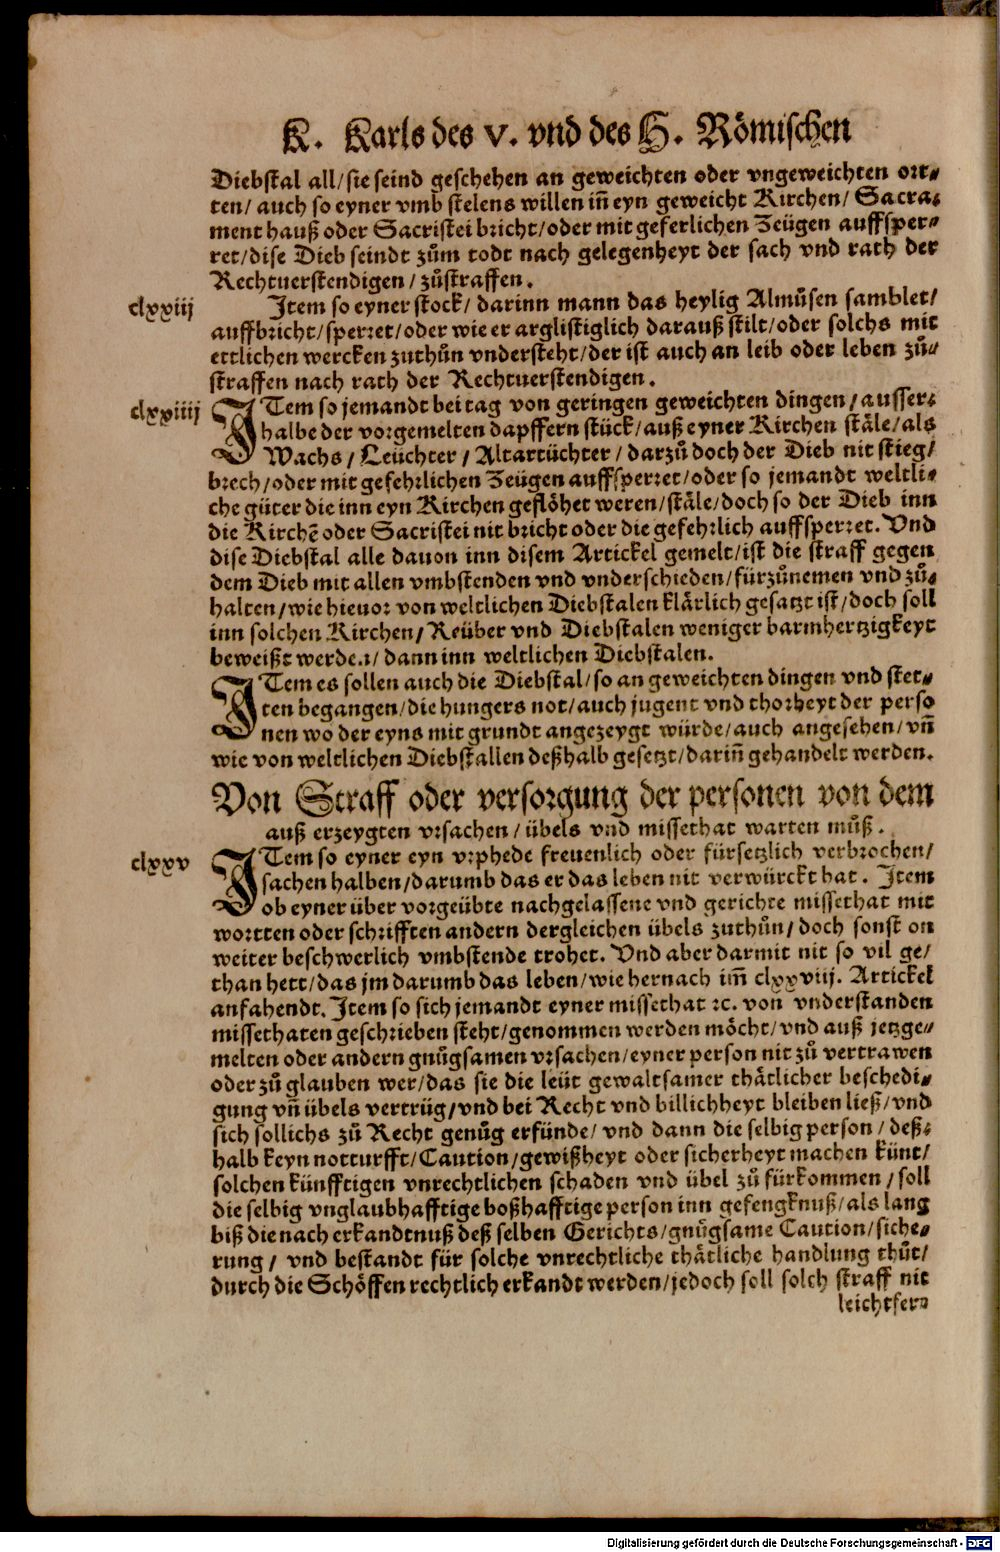 K. Karls des V. vnd des H. Römischen
Diebstal all/ sie seind geschehen an geweichten oder vngeweichten ort⸗
ten/ auch so eyner vmb stelens willen iñ eyn geweicht Kirchen/ Sacra⸗
ment hauß oder Sacristei bricht/ oder mit geferlichen Zeügen auffsper⸗
ret/ dise Dieb seindt zům todt nach gelegenheyt der sach vnd rath der
Rechtuerstendigen/ zůstraffen.
clxxiij
Item so eyner stock/ darinn mann das heylig Almůsen samblet/
auffbricht/ sperret/ oder wie er arglistiglich darauß stilt/ oder solchs mit
ettlichen wercken zuthůn vndersteht/ der ist auch an leib oder leben zů⸗
straffen nach rath der Rechtuerstendigen.
clxxiiij
ITem so jemandt bei tag von geringen geweichten dingen/ ausser⸗
halbe der vorgemelten dapffern stück/ auß eyner Kirchen stäle/ als
Wachs/ Leüchter/ Altartüchter/ darzů doch der Dieb nit stieg/
brech/ oder mit gefehrlichen Zeügen auffsperret/ oder so jemandt weltli⸗
che güter die inn eyn Kirchen geflöhet weren/ stäle/ doch so der Dieb inn
die Kirchē oder Sacristei nit bricht oder die gefehrlich auffsperret. Vnd
dise Diebstal alle dauon inn disem Artickel gemelt/ ist die straff gegen
dem Dieb mit allen vmbstenden vnd vnderschieden/ fürzůnemen vnd zů⸗
halten/ wie hieuor von weltlichen Diebstalen klärlich gesatzt ist/ doch soll
inn solchen Kirchen/ Reüber vnd Diebstalen weniger barmhertzigkeyt
beweißt werden/ dann inn weltlichen Diebstalen.
ITem es sollen auch die Diebstal/ so an geweichten dingen vnd stet⸗
ten begangen/ die hungers not/ auch jugent vnd thorheyt der perso
nen wo der eyns mit grundt angezeygt würde/ auch angesehen/ vñ
wie von weltlichen Diebstallen deßhalb gesetzt/ dariñ gehandelt werden.
Von Straff oder versorgung der personen von dem
auß erzeygten vrsachen/ übels vnd missethat warten můß.
clxxv
ITem so eyner eyn vrphede freuenlich oder fürsetzlich verbrochen/
sachen halben/ darumb das er das leben nit verwürckt hat. Item
ob eyner über vorgeübte nachgelassene vnd gerichte missethat mit
wortten oder schrifften andern dergleichen übels zuthůn/ doch sonst on
weiter beschwerlich vmbstende trohet. Vnd aber darmit nit so vil ge/
than hett/ das jm darumb das leben/ wie hernach im̃ clxxviij. Artickel
anfahendt. Item so sich jemandt eyner missethat ꝛc. von vnderstanden
missethaten geschrieben steht/ genommen werden möcht/ vnd auß jetzge⸗
melten oder andern gnůgsamen vrsachen/ eyner person nit zů vertrawen
oder zů glauben wer/ das sie die leüt gewaltsamer thätlicher beschedi⸗
gung vñ übels vertrüg/ vnd bei Recht vnd billichheyt bleiben ließ/ vnd
sich sollichs zů Recht genůg erfünde/ vnd dann die selbig person/ deß⸗
halb keyn notturfft/ Caution/ gewißheyt oder sicherheyt machen künt/
solchen künfftigen vnrechtlichen schaden vnd übel zů fürkommen/ soll
die selbig vnglaubhafftige boßhafftige person inn gefengknuß/ als lang
biß die nach erkandtnuß deß selben Gerichts/ gnůgsame Caution/ siche⸗
rung/ vnd bestandt für solche vnrechtliche thätliche handlung thůt/
durch die Schöffen rechtlich erkandt werden/ jedoch soll solch straff nit
leichtfer⸗
Digitalisierung gefördert durch die Deutsche Forschungsgemeinschaft - DFG